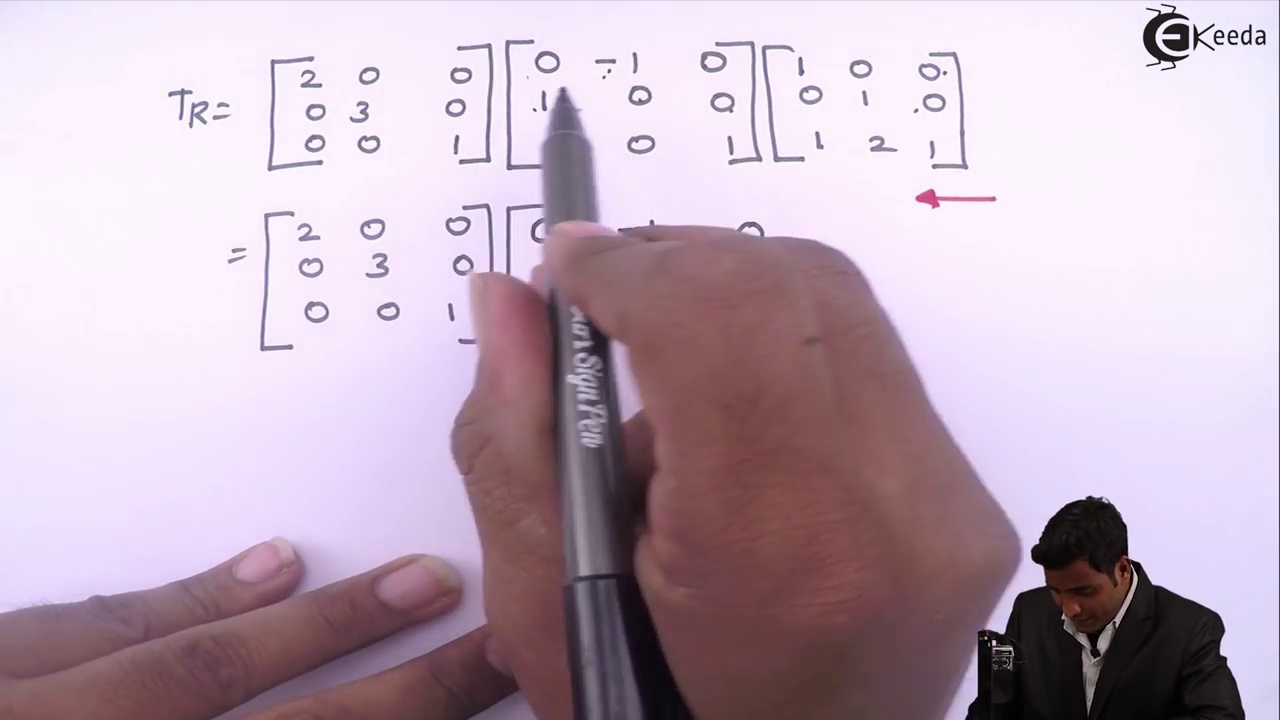 EKeeda
TR= [2 0 0] [0 -1 0] [1 0 0]
[0 3 0] [1 0 0] [0 1 0]
[0 0 1] [0 1] [1 2 1]
= [2 0 0] [0 -1 0
[0 3 0]
[0 0 1]
Sign Pen